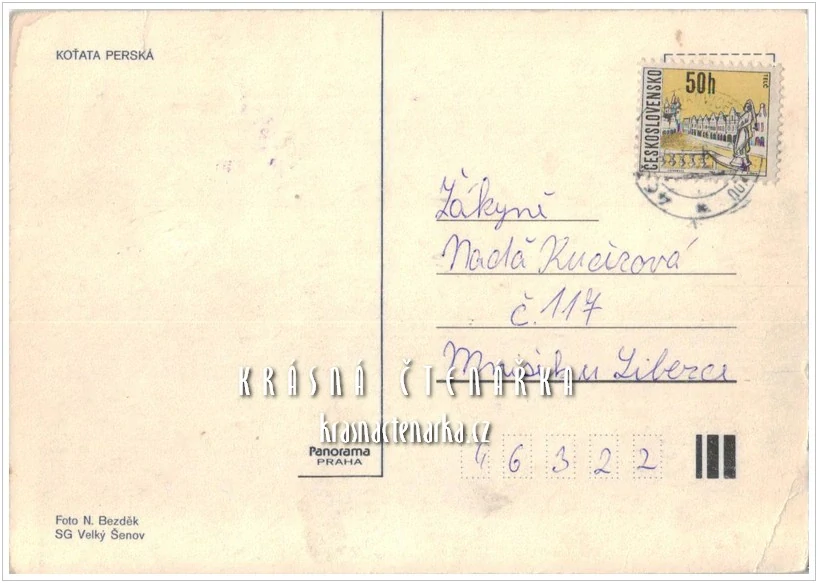 KOŤATA PERSKÁ
ČESKOSLOVENSKO
50h
TELČ
Žákyně
Naďa Kucirová
č. 117
Mníšek u Liberce
KRÁSNÁ ČTENÁŘKA
krasnactenarka.cz
Panorama
PRAHA
46322
Foto N. Bezděk
SG Velký Šenov